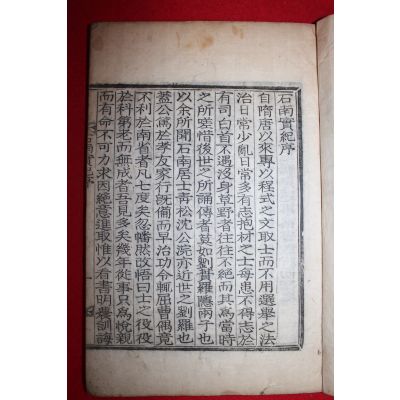 石南實紀序
自隋唐以來專以程式之文取士而不用選擧之法
治日常少亂日常多有志抱材之士每患不得志於
有司白首不遇沒身草野者往往不絶而其爲當時
之所嗟惜後世之所誦傳者莫如劉蕡羅隱兩子也
以余所聞石南居士靑松沈公 亦近世之劉羅也
蓋公篤於孝友家行旣備而早治功令輒屈曹偶竟
不利於南省者凡七度矣忽幡然改悟曰士之役役
於科第老而無成者吾見多矣幾年徒事只爲悅親
而有命不可力求因絶意進取惟以看書明農訓誨
石南實紀序
一